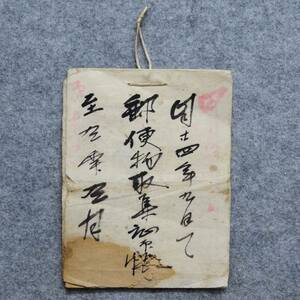 自十四年九月
郵便物取集帳
至五年五月